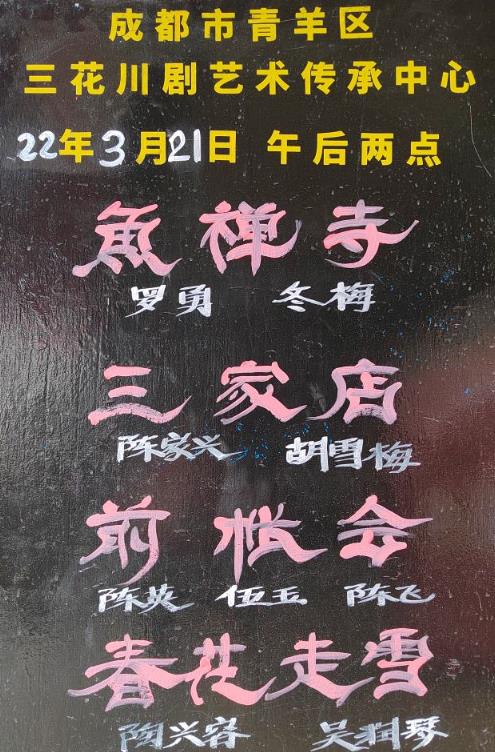 成都市青羊区
三花川剧艺术传承中心
22年3月21日 午后两点
魚禅寺
罗勇 冬梅
三家店
陈家兴 胡雪梅
前帐会
陈英 伍玉 陈飞
春花走雪
陶兴容 吴润琴